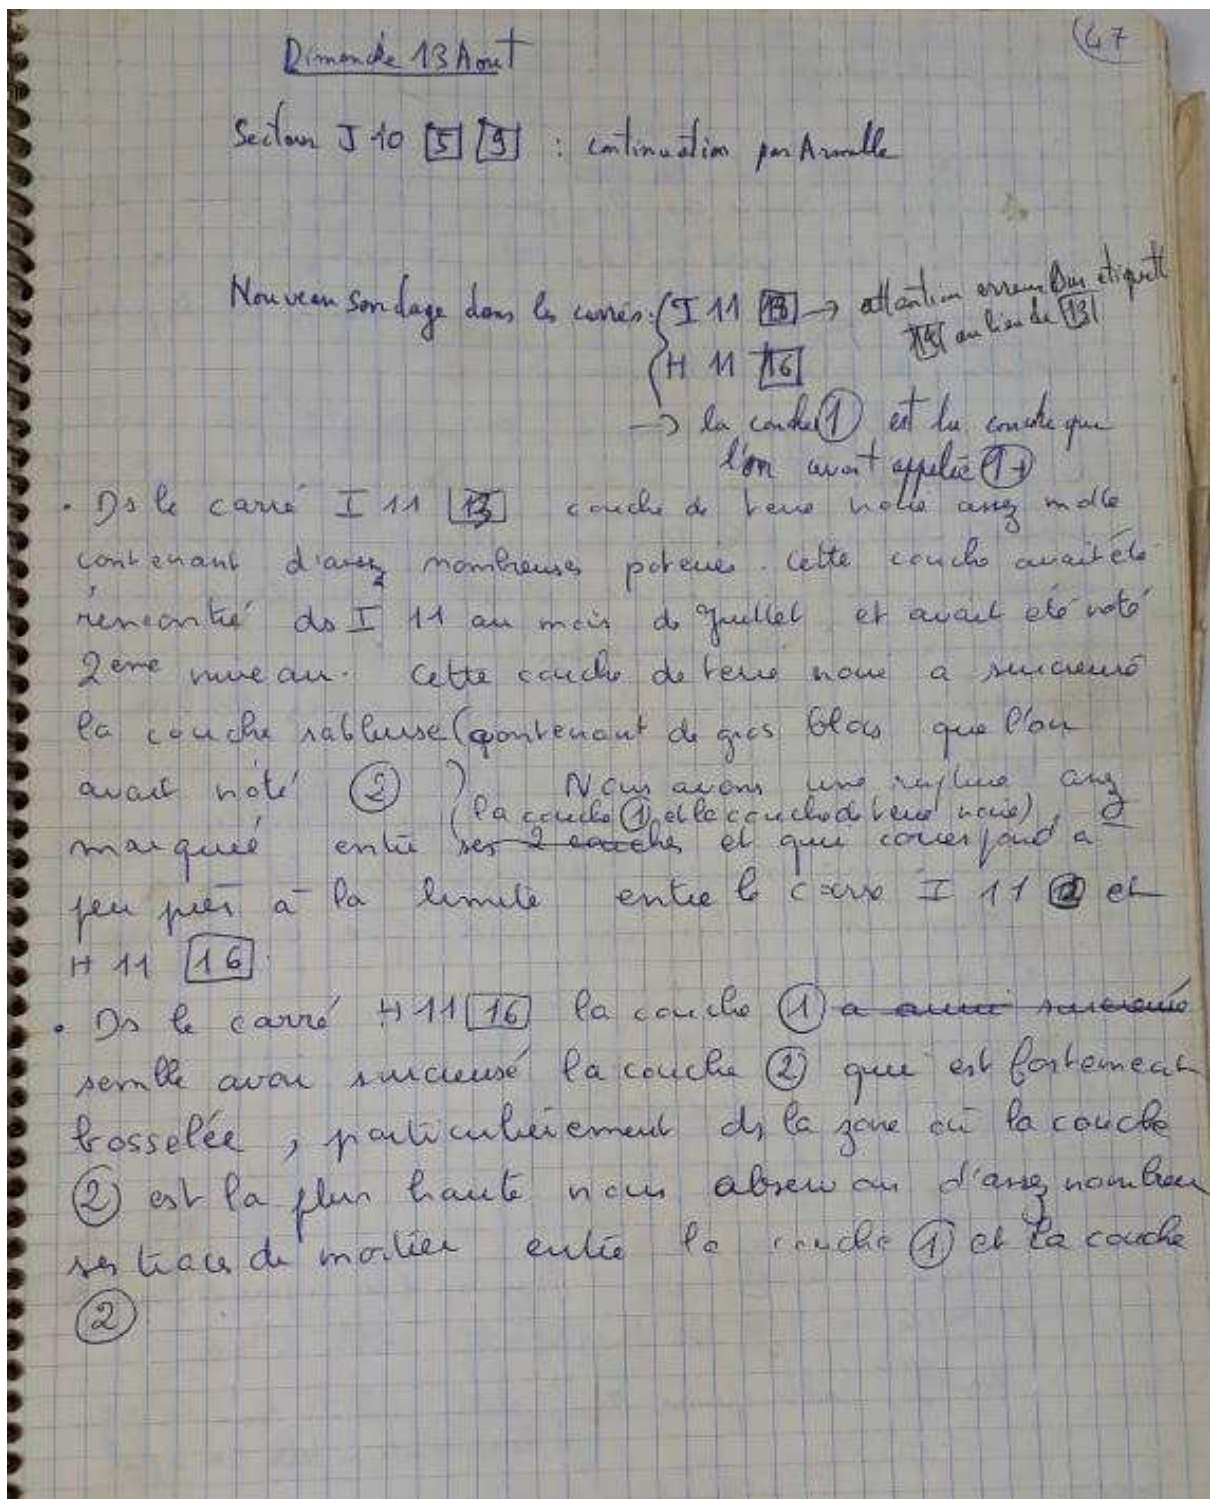 47
Dimanche 13 Aout
Secteur J 10 [5] [9] : continuation par Armelle
Nouveau sondage dans les carrés : { I 11 [13] → attention erreur sur etiquett
[14] au lieu de [13]
H 11 [16]
→ la couche ① est la couche que
l'on avait appelée
• Ds le carré I 11 [13] couche de terre noire assez molle
contenant d'assez nombreuses poteries. Cette couche avait été
rencontré ds I 11 au mois de Juillet et avait été noté
2eme niveau. Cette couche de terre noire a surcreusé
la couche sableuse (contenant de gros blocs que l'on
avait noté ② ) Nous avons une rupture assez
(la couche ① et la couche de terre noire)
marquée entre ses 2 couches et qui correspond à
peu près à la limite entre le carré I 11 et
H 11 [16].
• Ds le carré H 11 [16] la couche ① a aussi surcreusé
semble avoir surcreusé la couche ② qui est fortement
bosselée, particulièrement ds la zone où la couche
② est la plus haute nous observon d'assez nombreu
ses traces de mortier entre la couche ① et la couche
②